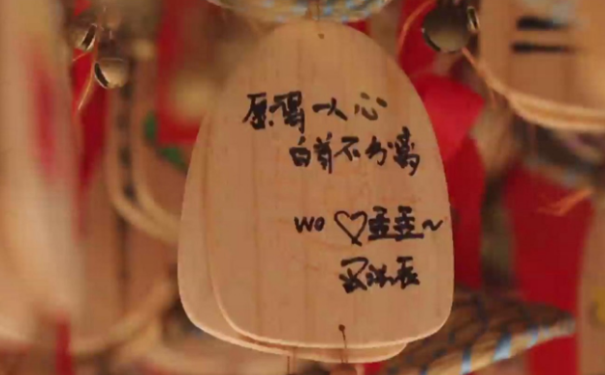 愿得一人心
白首不分离
wo ♡ 圭圭~